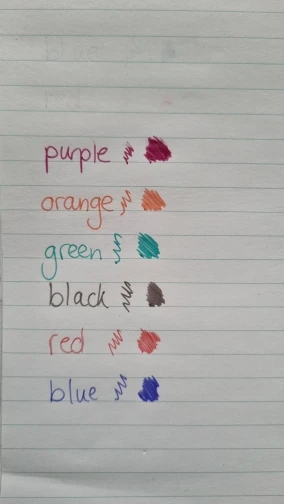 purple
orange
green
black
red
blue